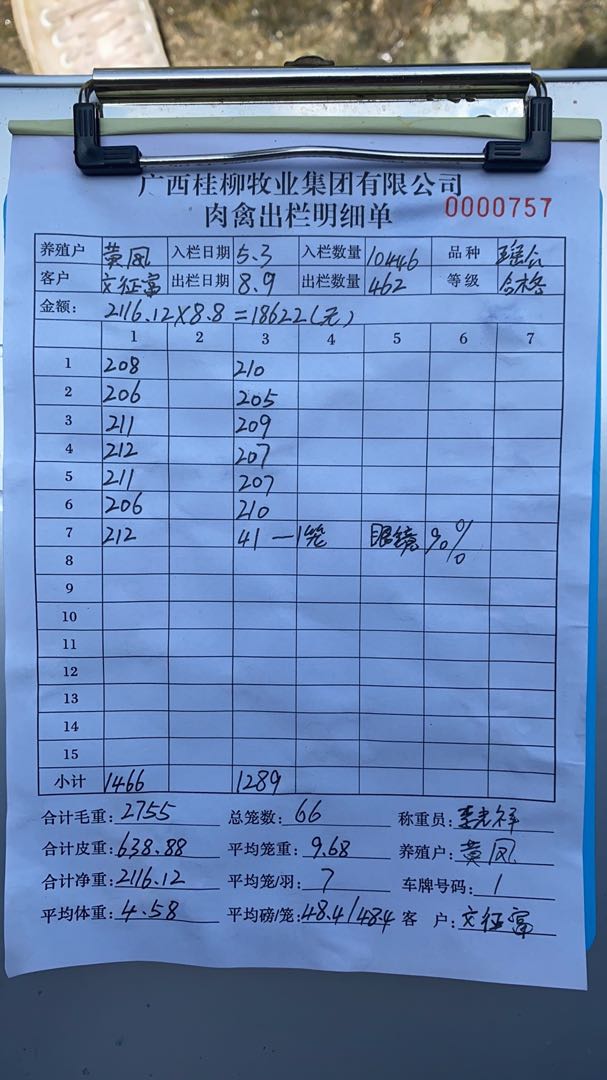 广西桂柳牧业集团有限公司
肉禽出栏明细单 0000757
养殖户 黄凤 入栏日期 5.3 入栏数量 10446 品种 瑶公
客户 文征富 出栏日期 8.9 出栏数量 462 等级 合格
金额: 2116.12×8.8=18622(元)
1 2 3 4 5 6 7
1 208 210
2 206 205
3 211 209
4 212 207
5 211 207
6 206 210
7 212 41 —1笼 眼镜 %%
8
9
10
11
12
13
14
15
小计 1466 1289
合计毛重: 2755 总笼数: 66 称重员: 李光祥
合计皮重: 638.88 平均笼重: 9.68 养殖户: 黄凤
合计净重: 2116.12 平均笼/羽: 7 车牌号码: 1
平均体重: 4.58 平均磅/笼: 48.4/484 客 户: 文征富